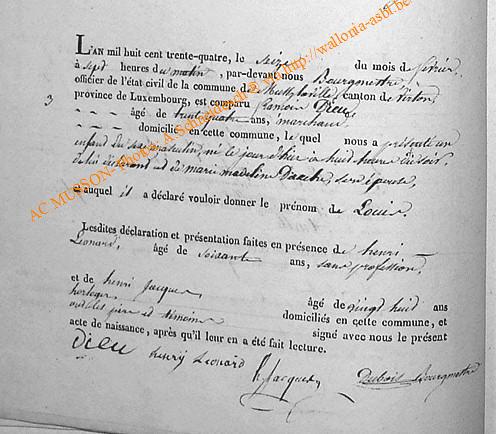 3
L'AN mil huit cent trente-quatre, le seize du mois de février
à sept heures du matin, par-devant nous Bourgmestre,
officier de l'état civil de la commune de canton de Virton,
province de Luxembourg, est comparu Dieu
âgé de trente quatre ans, marchand
domicilié en cette commune, le quel nous a présenté un
enfant du sexe masculin, né le jour d'hier à huit heures du soir,
de lui déclarant et de marie madelein son épouse,
auquel il a déclaré vouloir donner le prénom de Louis.
Lesdites déclaration et présentation faites en présence de henri
Léonard, âgé de soixante ans, sans profession,
et de henri Jacques, âgé de vingt huit ans
horloger, domiciliés en cette commune, et
père et témoins signé avec nous le présent
acte de naissance, après qu'il leur en a été fait lecture.
dieu henry Leonard h Jacques Dubois Bourgmestre
AC MUSSON- Photo: A Schneidesch © vh http://wallonia-asbl.be